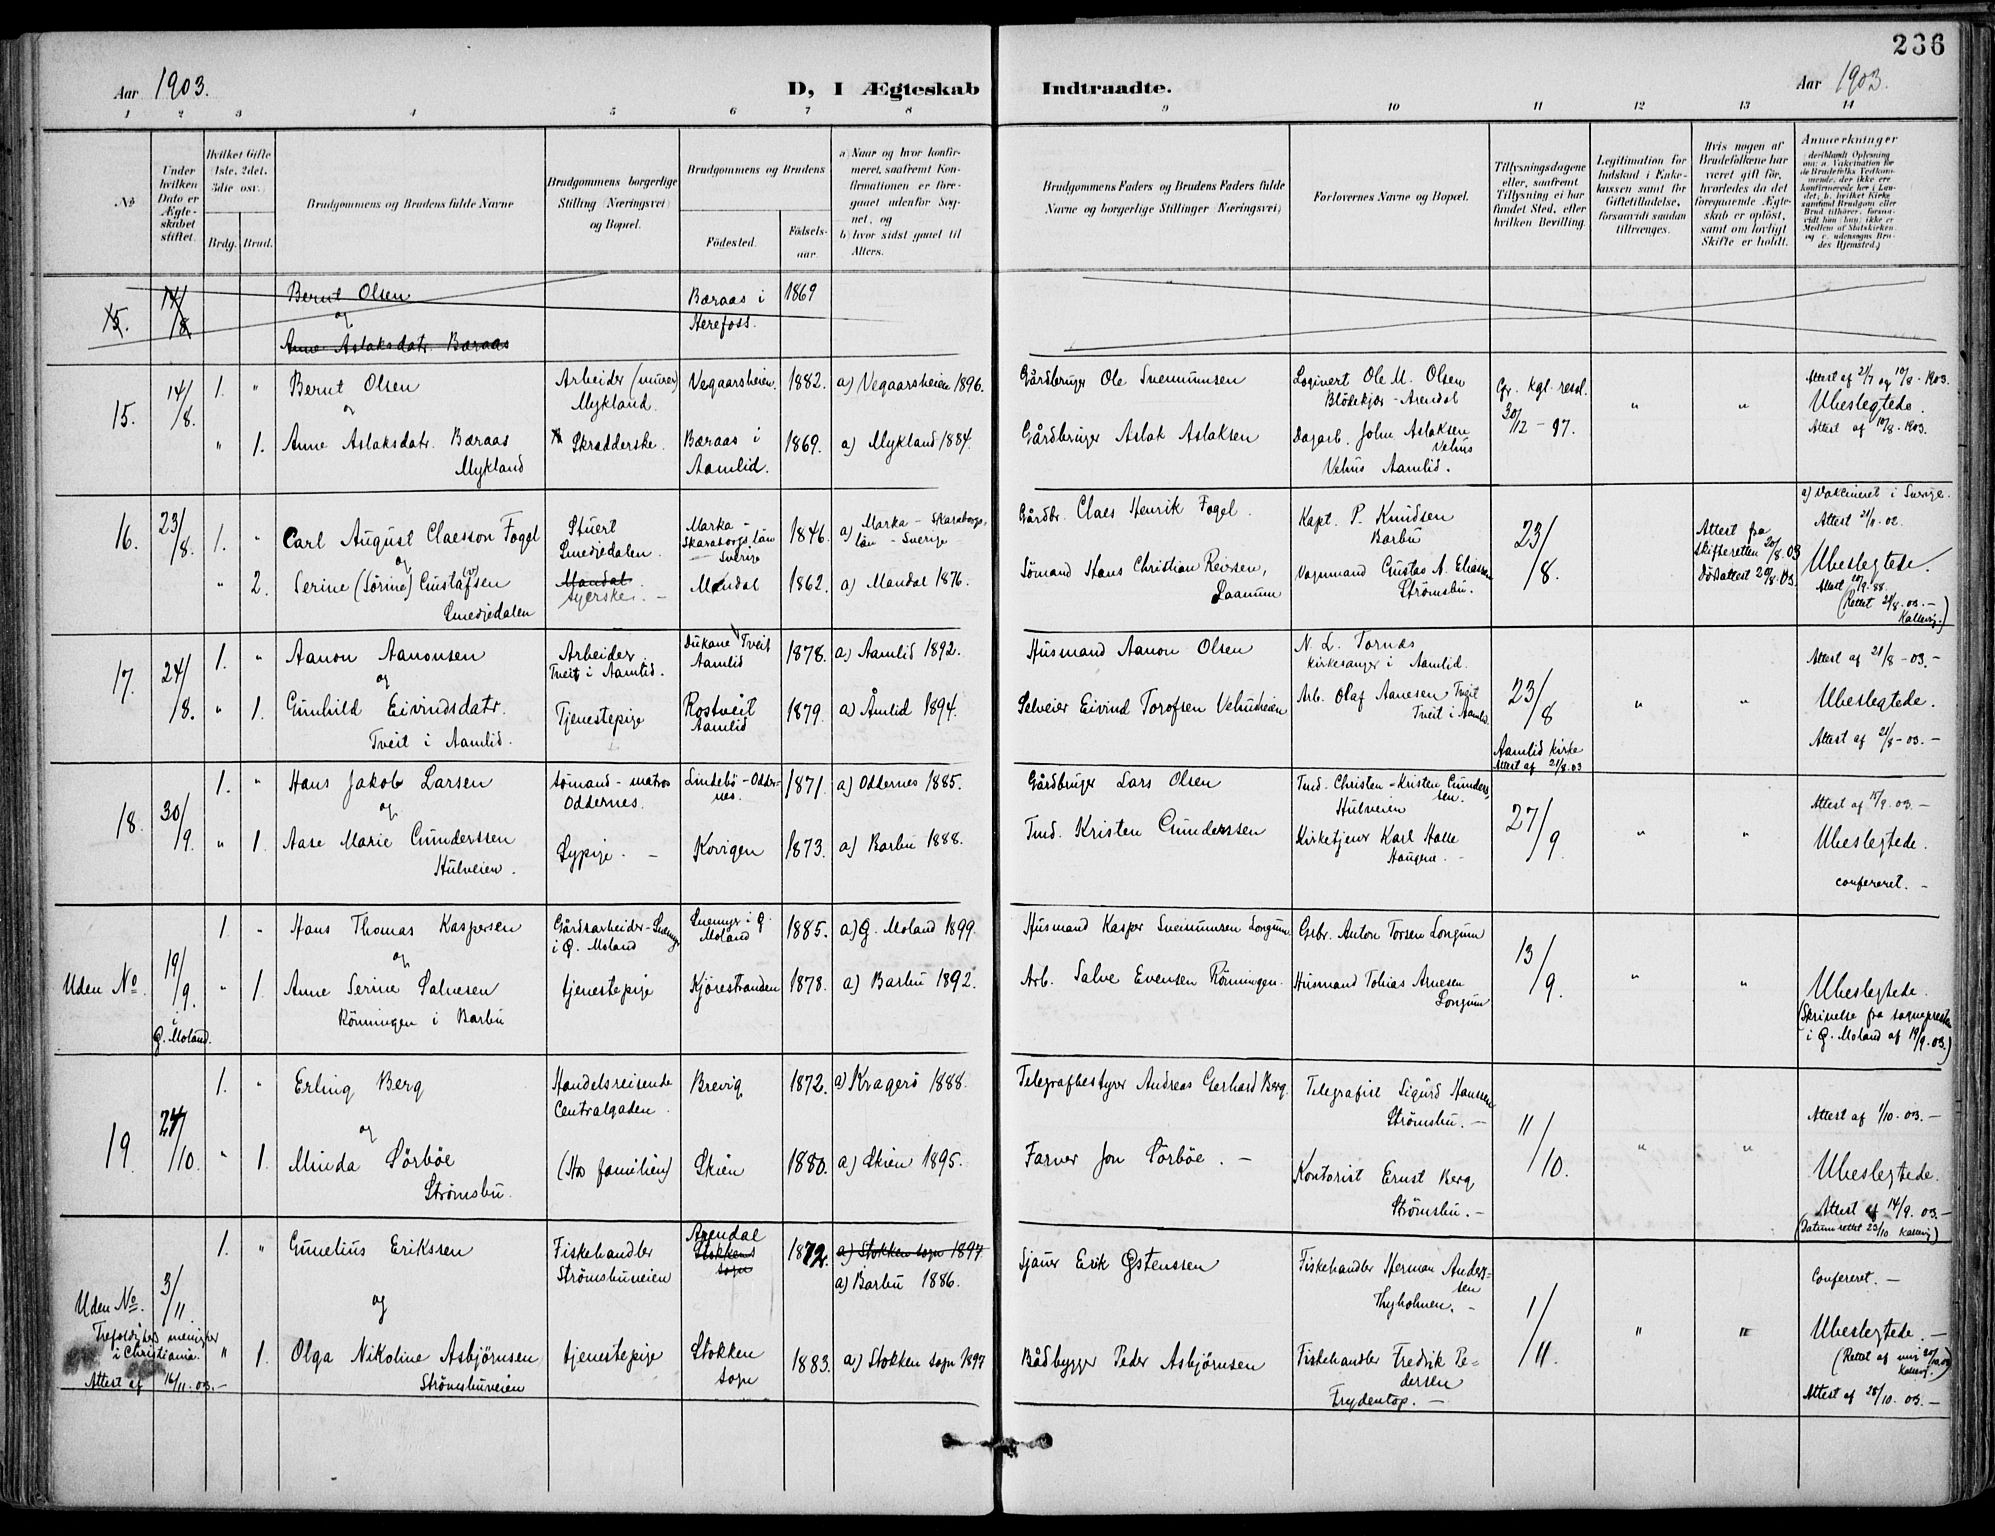 236
Aar 1903.
D, I Ægteskab Indtraadte.
Aar 1903.
1 2 3 4 5 6 7 8 9 10 11 12 13 14
No
Under hvilken Dato er Ægteskabet stiftet.
Hvilket Gifte (1ste, 2det, 3die osv.)
Brdg. Brud.
Brudgommens og Brudens fulde Navne
Brudgommens borgerlige Stilling (Næringsvei) og Bopæl.
Brudgommens og Brudens
Fødested. Fødselsaar.
a) Naar og hvor konfirmeret, saafremt Konfirmationen er foregaaet udenfor Sognet, og
b) hvor sidst gaaet til Alters.
Brudgommens Faders og Brudens Faders fulde Navne og borgerlige Stillinger (Næringsvei)
Forlovernes Navne og Bopæl.
Tillysningsdagene eller, saafremt Tillysning ei har fundet Sted, efter hvilken Bevilling.
Legitimation for Indskud i Enkekassen samt for Giftetilladelse, forsaavidt saadan tiltrænges.
Hvis nogen af Brudefolkene har været gift før, hvorledes da det foregaaende Ægteskab er opløst, samt om lovligt Skifte er holdt.
Anmærkninger
15. 14/8 Bernt Olsen Baraas i 1869
og Herefoss.
Anne Aslaksdatr. Baraas
15. 14/8. 1. " Bernt Olsen Arbeider (murer) Vegaarsheien. 1882. a) Vegaarsheien 1896. Gårdbruger Ole Svenumsen Logivert Ole M. Olsen Gr. kgl. resol. " " Attest af 21/7 og 10/8 - 1903.
og Mykland. Blödekjær - Arendal 30/12 - 97. Ubeslegtede.
" 1. Anne Aslaksdatr. Baraas Skrædderske. Baraas i 1869. a) Mykland 1884. Gårdbruger Aslak Aslaksen Dagarb. John Aslaksen Attest af 10/8 - 1903.
Mykland Aamlid. Vehus
Vehus Aamlid.
16. 23/8. 1. " Carl August Claesson Fogel Stuert Marka - Skaraborgs län - Sverige 1846. a) Marka - Skaraborgs län - Sverige Gårdbr. Claes Henrik Fogel. Kapt. P. Knudsen 23/8. Attest fra a) Vakcineret i Sverige.
og Smedjedalen. Barbu skifteretten 20/8. 03 Attest 21/11. 02.
" 2. Serine (Sörine) Gustafsen Mandal. Mandal 1862. a) Mandal 1876. Sömand Hans Christian Reiersen, Vognmand Gustav A. Eliassen Dödsattest 20/8. 03. Ubeslegtede.
Smedjedalen syerske. - Strömsbu. Attest 20/9. 88.
(Rettet 24/8. 03. - Kallevig.)
17. 24/8. 1. " Aanon Aanonsen Arbeider. Dukane Tveit 1878. a) Aamlid 1892. Husmand Aanon Olsen N. L. Tornæs 23/8 " " Attest af 21/8 - 03. -
og Tveit i Aamlid. Aamlid kirkesanger i Aamlid.
" 1. Gunhild Eivindsdatr. Tjenestepige Rostveit 1879. a) Åmlid 1894. Selveier Eivind Torofsen Vehusheien Arb. Olaf Aanesen Tveit Ubeslegtede.
Tveit i Aamlid. Aamlid Tveit i Aamlid. Aamlid kirke Attest af 21/8 - 03. -
Attest af 21/8. 03
18. 30/9. 1. " Hans Jakob Larsen sömand - matros Lindebö - Oddernes. 1871. a) Oddernes 1885. Gårdbruger Lars Olsen Tmd. Christen - Kristen Gunderssen. 27/9 " " Attest af 15/9. 03. -
og Oddernes. Hulveien
" 1. Aase Marie Gunderssen Sypige. - Kovigen 1873. a) Barbu 1888. Tmd. Kristen Gunderssen Kirketjener Karl Halle Ubeslegtede.
Hulveien. Haugene. - confereret. -
Uden No. 19/9. i Ø. Moland. 1. " Hans Thomas Kaspersen Gårdsarbeider - Snemyr i Ø 1885. a) Ø. Moland 1899. Husmand Kasper Svenumsen Longum. Gsbr. Anton Torsen Longum 13/9. " "
og i Ø. Moland Moland
" 1. Anne Serine Salvesen tjenestepige Kjörestranden 1878. a) Barbu 1892. Arb. Salve Evensen Rönningen. Husmand Tobias Arnesen Ubeslegtede.
Rönningen i Barbu Longum (Skrivelse fra sognepresten
i Ø. Moland af 19/9. 03.)
19. 24/10. 1. " Erling Berg Handelsreisende Brevig 1872. a) Kragerö 1888. Telegrafbestyrer Andreas Gerhard Berg. Telegrafist Sigurd Hanssen 11/10. " " Attest af 1/10. 03. -
og Centralgaden. Strömsbu. -
" 1. Minda Sörböe (Hos familien) Skien 1880. a) Skien 1895. Farver Jon Sörböe. - Kontorist Ernst Berg Ubeslegtede.
Strömsbu. Strömsbu. - Attest af 14/9. 03. -
(Datum rettet 23/10 Kallevig)
Uden No. 3/11. 1. " Gunelius Erikssen Fiskehandler Arendal 1872. a) Stokken sogn 1897 Sjauer Erik Østenssen Fiskehandler Herman Anderssen 1/11. " " Confereret. -
Strömsbuveien Stokkens sogn a) Barbu 1886. Thyholmen. -
Trefoldigheds menighet i Christiania. og Ubeslegtede. -
" 1. Olga Nikoline Asbjörnsen tjenestepige Stokken 1883. a) Stokken sogn 1897 Bådbygger Peder Asbjörnsen Fiskehandler Fredrik Pedersen (Rettet af mig Kallevig.)
Attest af 16/11. 03. - Strömsbuveien sogn Frydentop. - Attest af 28/10. 03. -